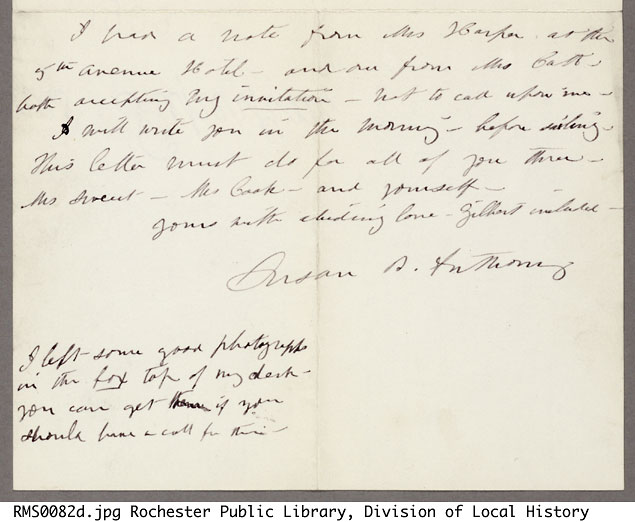 I had a note from Mrs Harper at the
5th Avenue Hotel - and one from Mrs Catt -
both accepting my invitation - not to call upon me -
I will write you in the morning - before sailing -
This letter must do for all of you three -
Mrs Sweet - Mrs Cook - and yourself -
yours with abiding love - Gilbert included -
Susan B. Anthony
I left some good photographs
in the box top of my desk -
you can get them if you
should have a call for them -
RMS0082d.jpg Rochester Public Library, Division of Local History